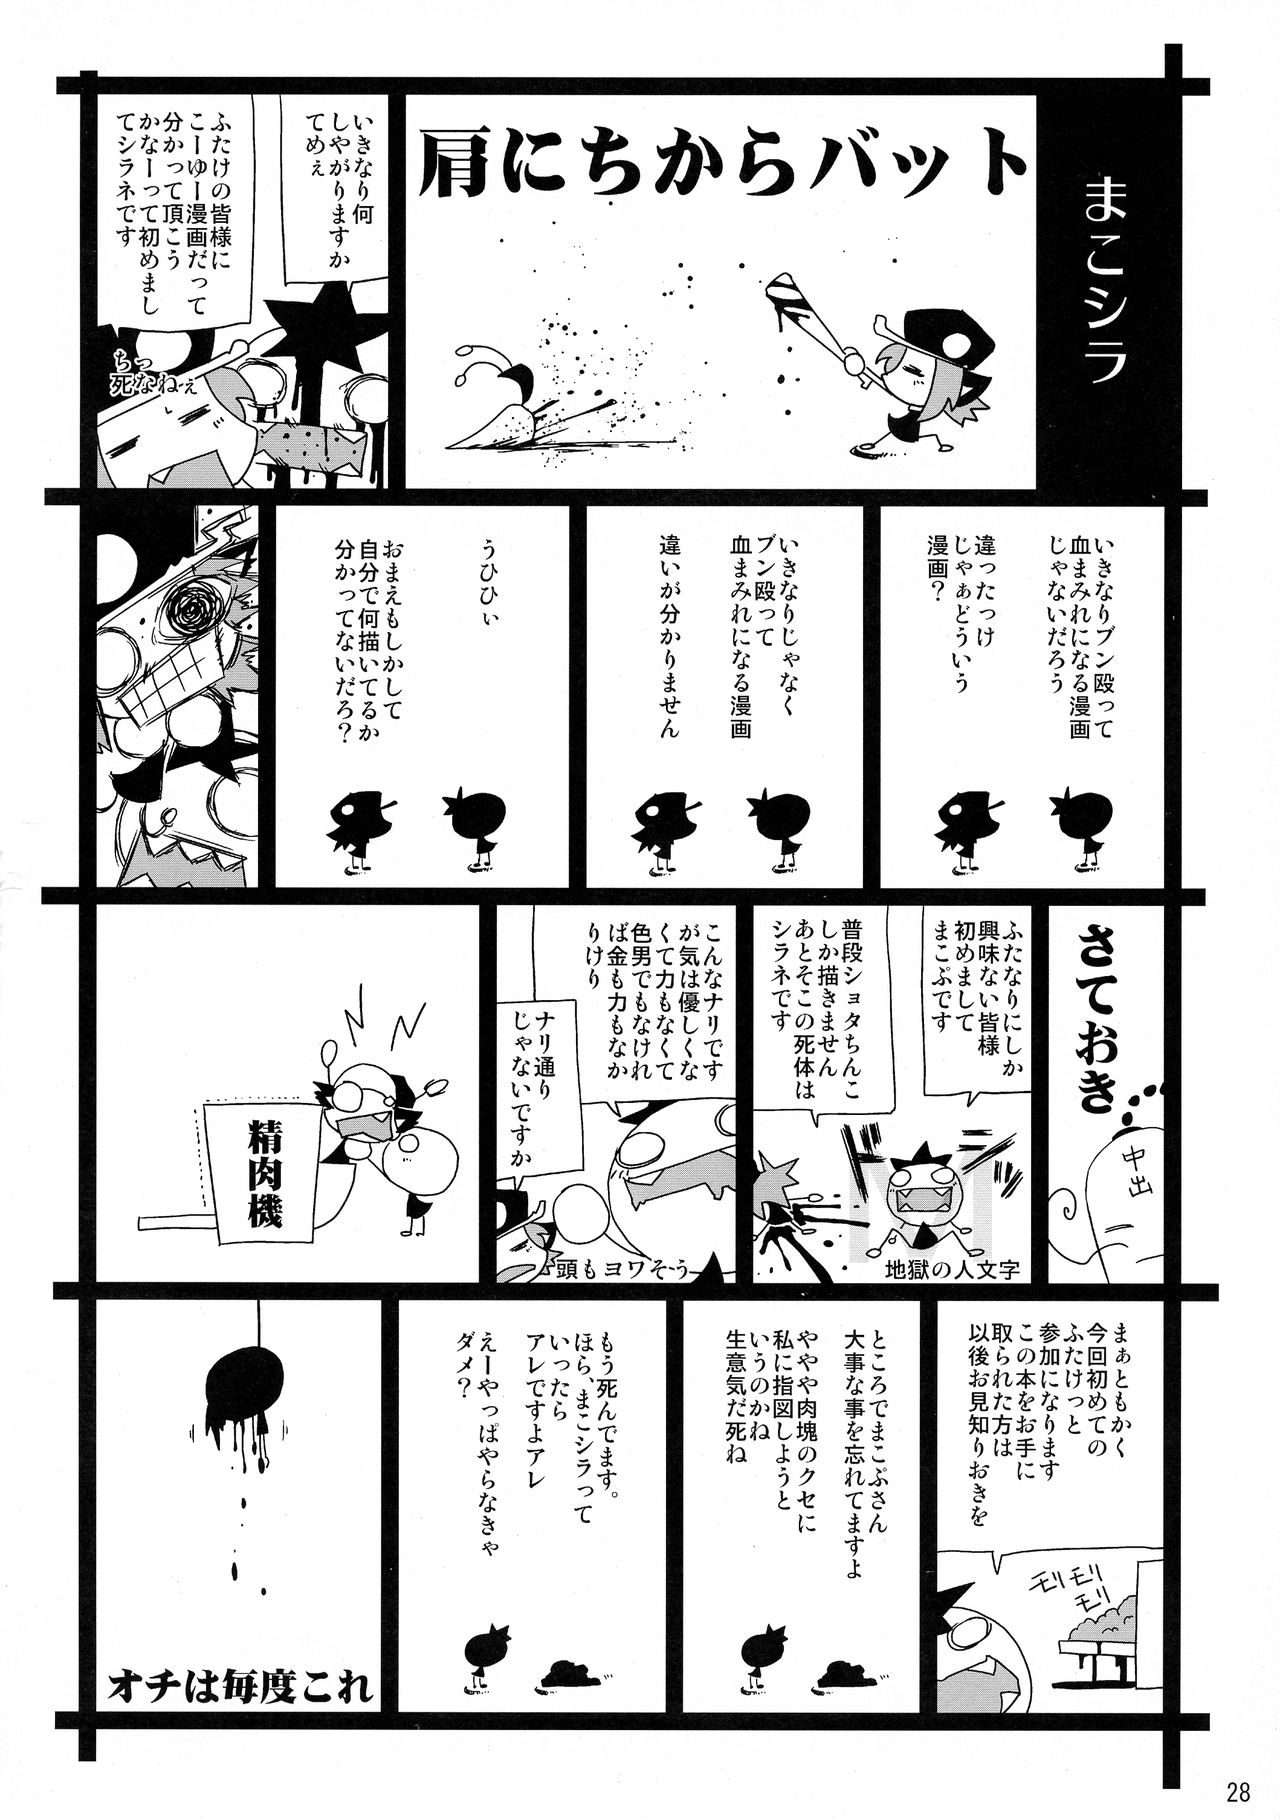 まこシラ
肩にちからバット
いきなり何
しやがりますか
てめぇ
ふたけの皆様に
こーゆー漫画だって
分かって頂こう
かなーって初めまし
てシラネです
ちっ
死なねぇ
いきなりブン殴って
血まみれになる漫画
じゃないだろう
違ったっけ
じゃぁどういう
漫画?
いきなりじゃなく
ブン殴って
血まみれになる漫画
違いが分かりません
うひひぃ
おまえもしかして
自分で何描いてるか
分かってないだろ?
さておき
中出
ふたなりにしか
興味ない皆様
初めまして
まこぷです
普段ショタちんこ
しか描きません
あとそこの死体は
シラネです
ドドーン
M
地獄の人文字
こんなナリです
が気は優しくな
くて力もなくて
色男でもなけれ
ば金も力もなか
りけり
ナリ通り
じゃないですか
頭もヨワそう
精肉機
まぁともかく
今回初めての
ふたけっと
参加になります
この本をお手に
取られた方は
以後お見知りおきを
モリモリ
モリ
ところでまこぷさん
大事な事を忘れてますよ
ややや肉塊のクセに
私に指図しようと
いうのかね
生意気だ死ね
もう死んでます。
ほら、まこシラって
いったら
アレですよアレ
えーやっぱやらなきゃ
ダメ?
オチは毎度これ
28